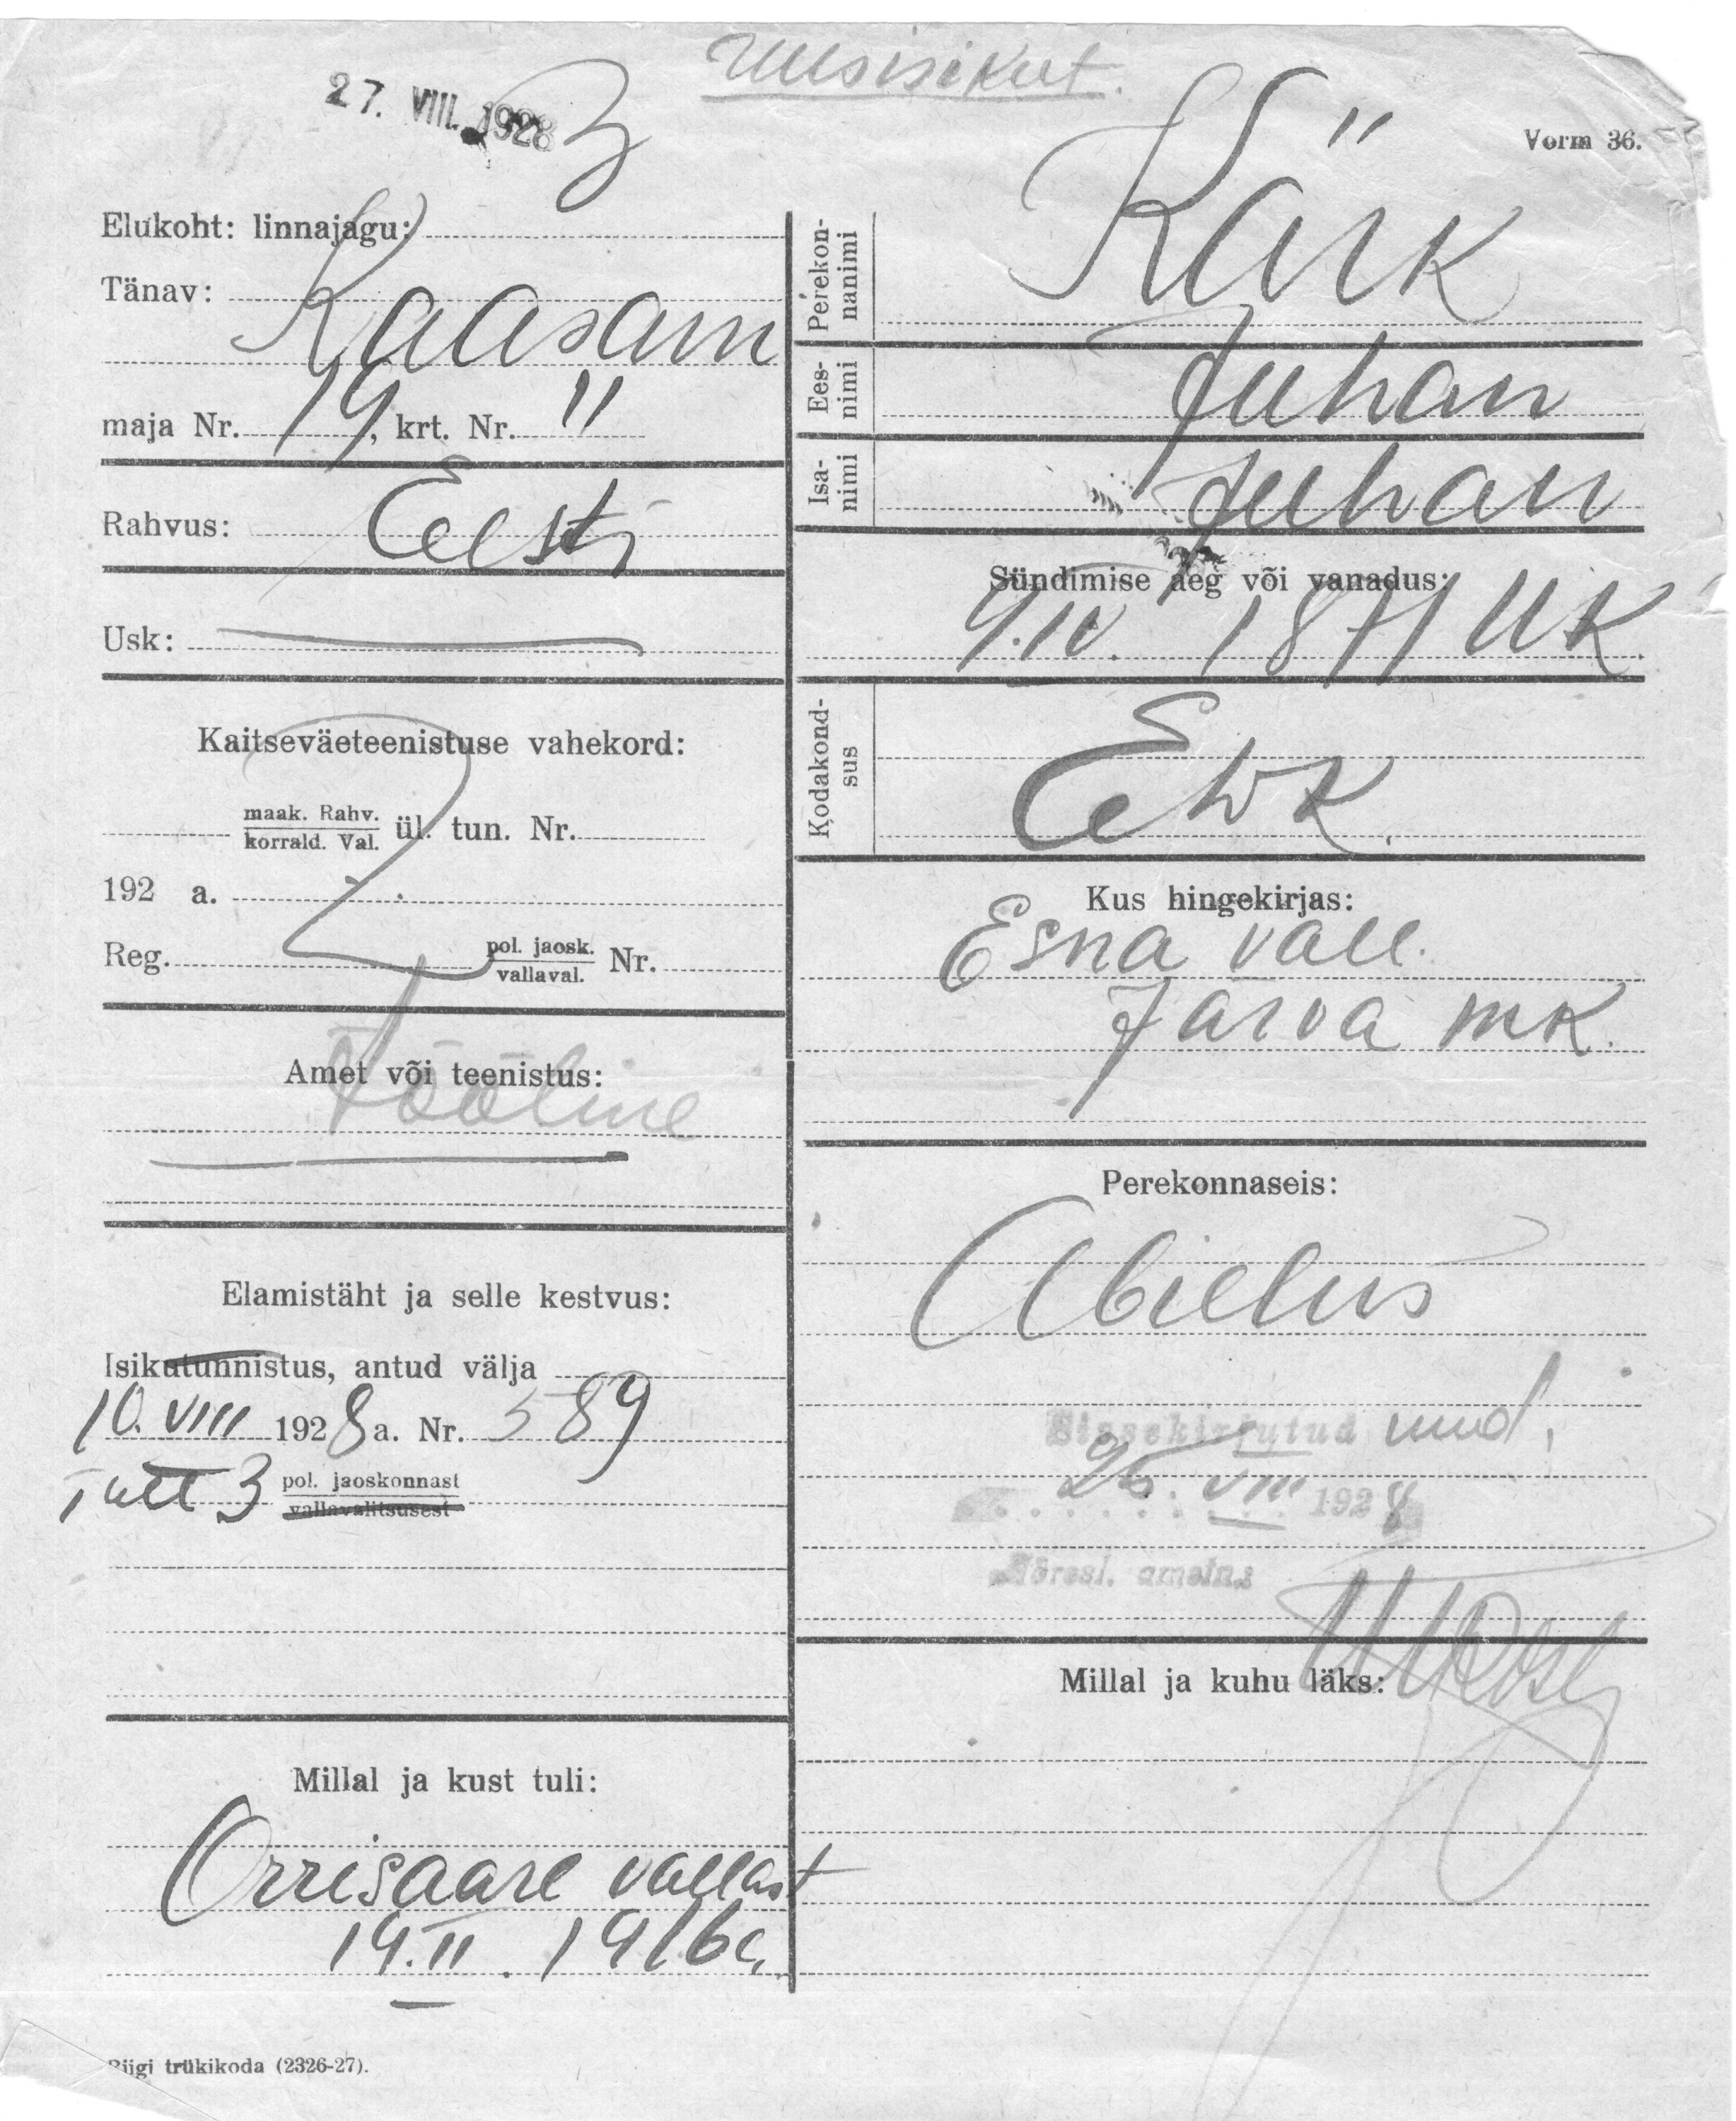 Uusisikut.
27. VIII. 1928
Vorm 36.
Elukoht: linnajagu:
Tänav:
Kaasani
maja Nr. 19, krt. Nr. "
Rahvus: Eesti
Usk:
Kaitseväeteenistuse vahekord:
maak. Rahv.
korrald. Val. ül. tun. Nr.
192 a.
Reg. pol. jaosk. Nr.
vallaval.
Amet või teenistus:
Tööline
Elamistäht ja selle kestvus:
Isikutunnistus, antud välja
10. VIII 1928 a. Nr. 589
3 pol. jaoskonnast
vallavalitsusest
Millal ja kust tuli:
Orrisaare vallast
19. II. 1916 a.
Riigi trükikoda (2326-27).
Perekon-
nanimi
Kärk
Ees-
nimi
Juhan
Isa-
nimi
Juhan
Sündimise aeg või vanadus:
9. IV. 1871 UK.
Kodakond-
sus
EWK.
Kus hingekirjas:
Esna vall.
Järva mk.
Perekonnaseis:
Abielus
Sissekirjutud uued,
26. VIII 1928
Nõresl. ametn.
Millal ja kuhu läks: